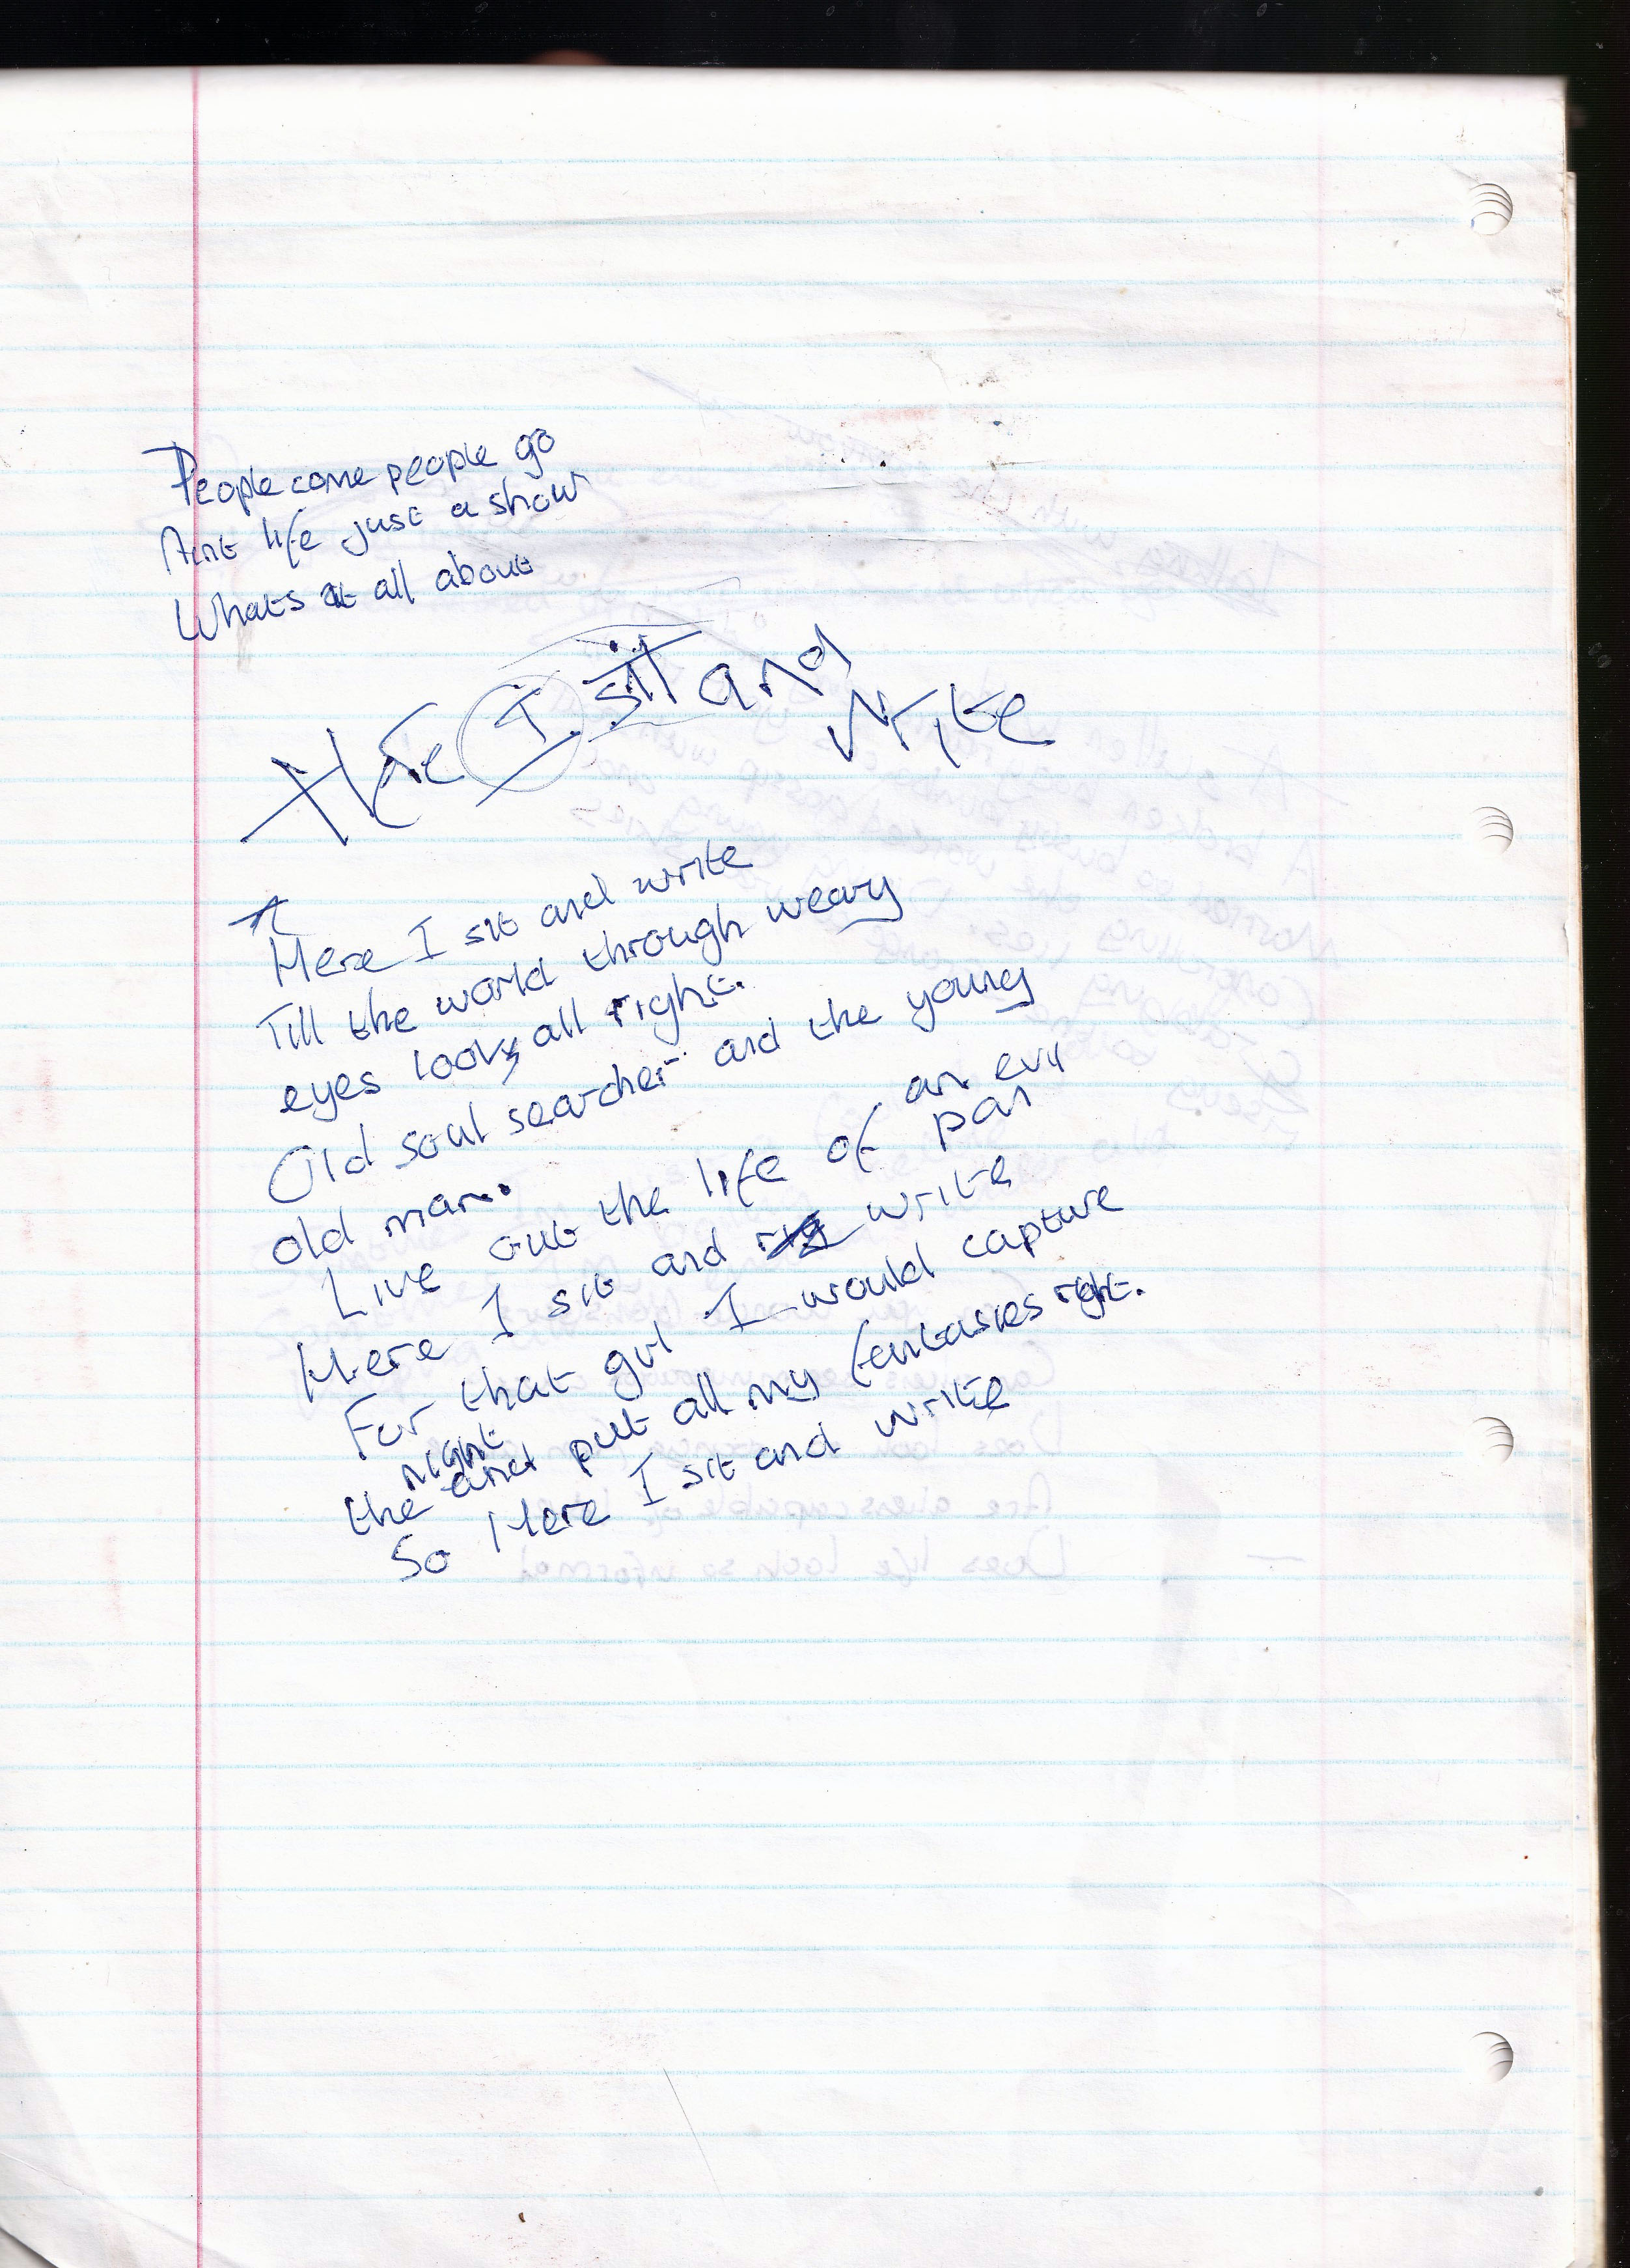 People come people go
Aint life just a show
Whats it all about
Here I sit and
Write
Here I sit and write
Till the world through weary
eyes looks all right.
Old soul searcher and the young
old man.
Live out the life of an evil
pan
Here I sit and write
For that girl I would capture
night
the and put all my fantasies right.
So Here I sit and write